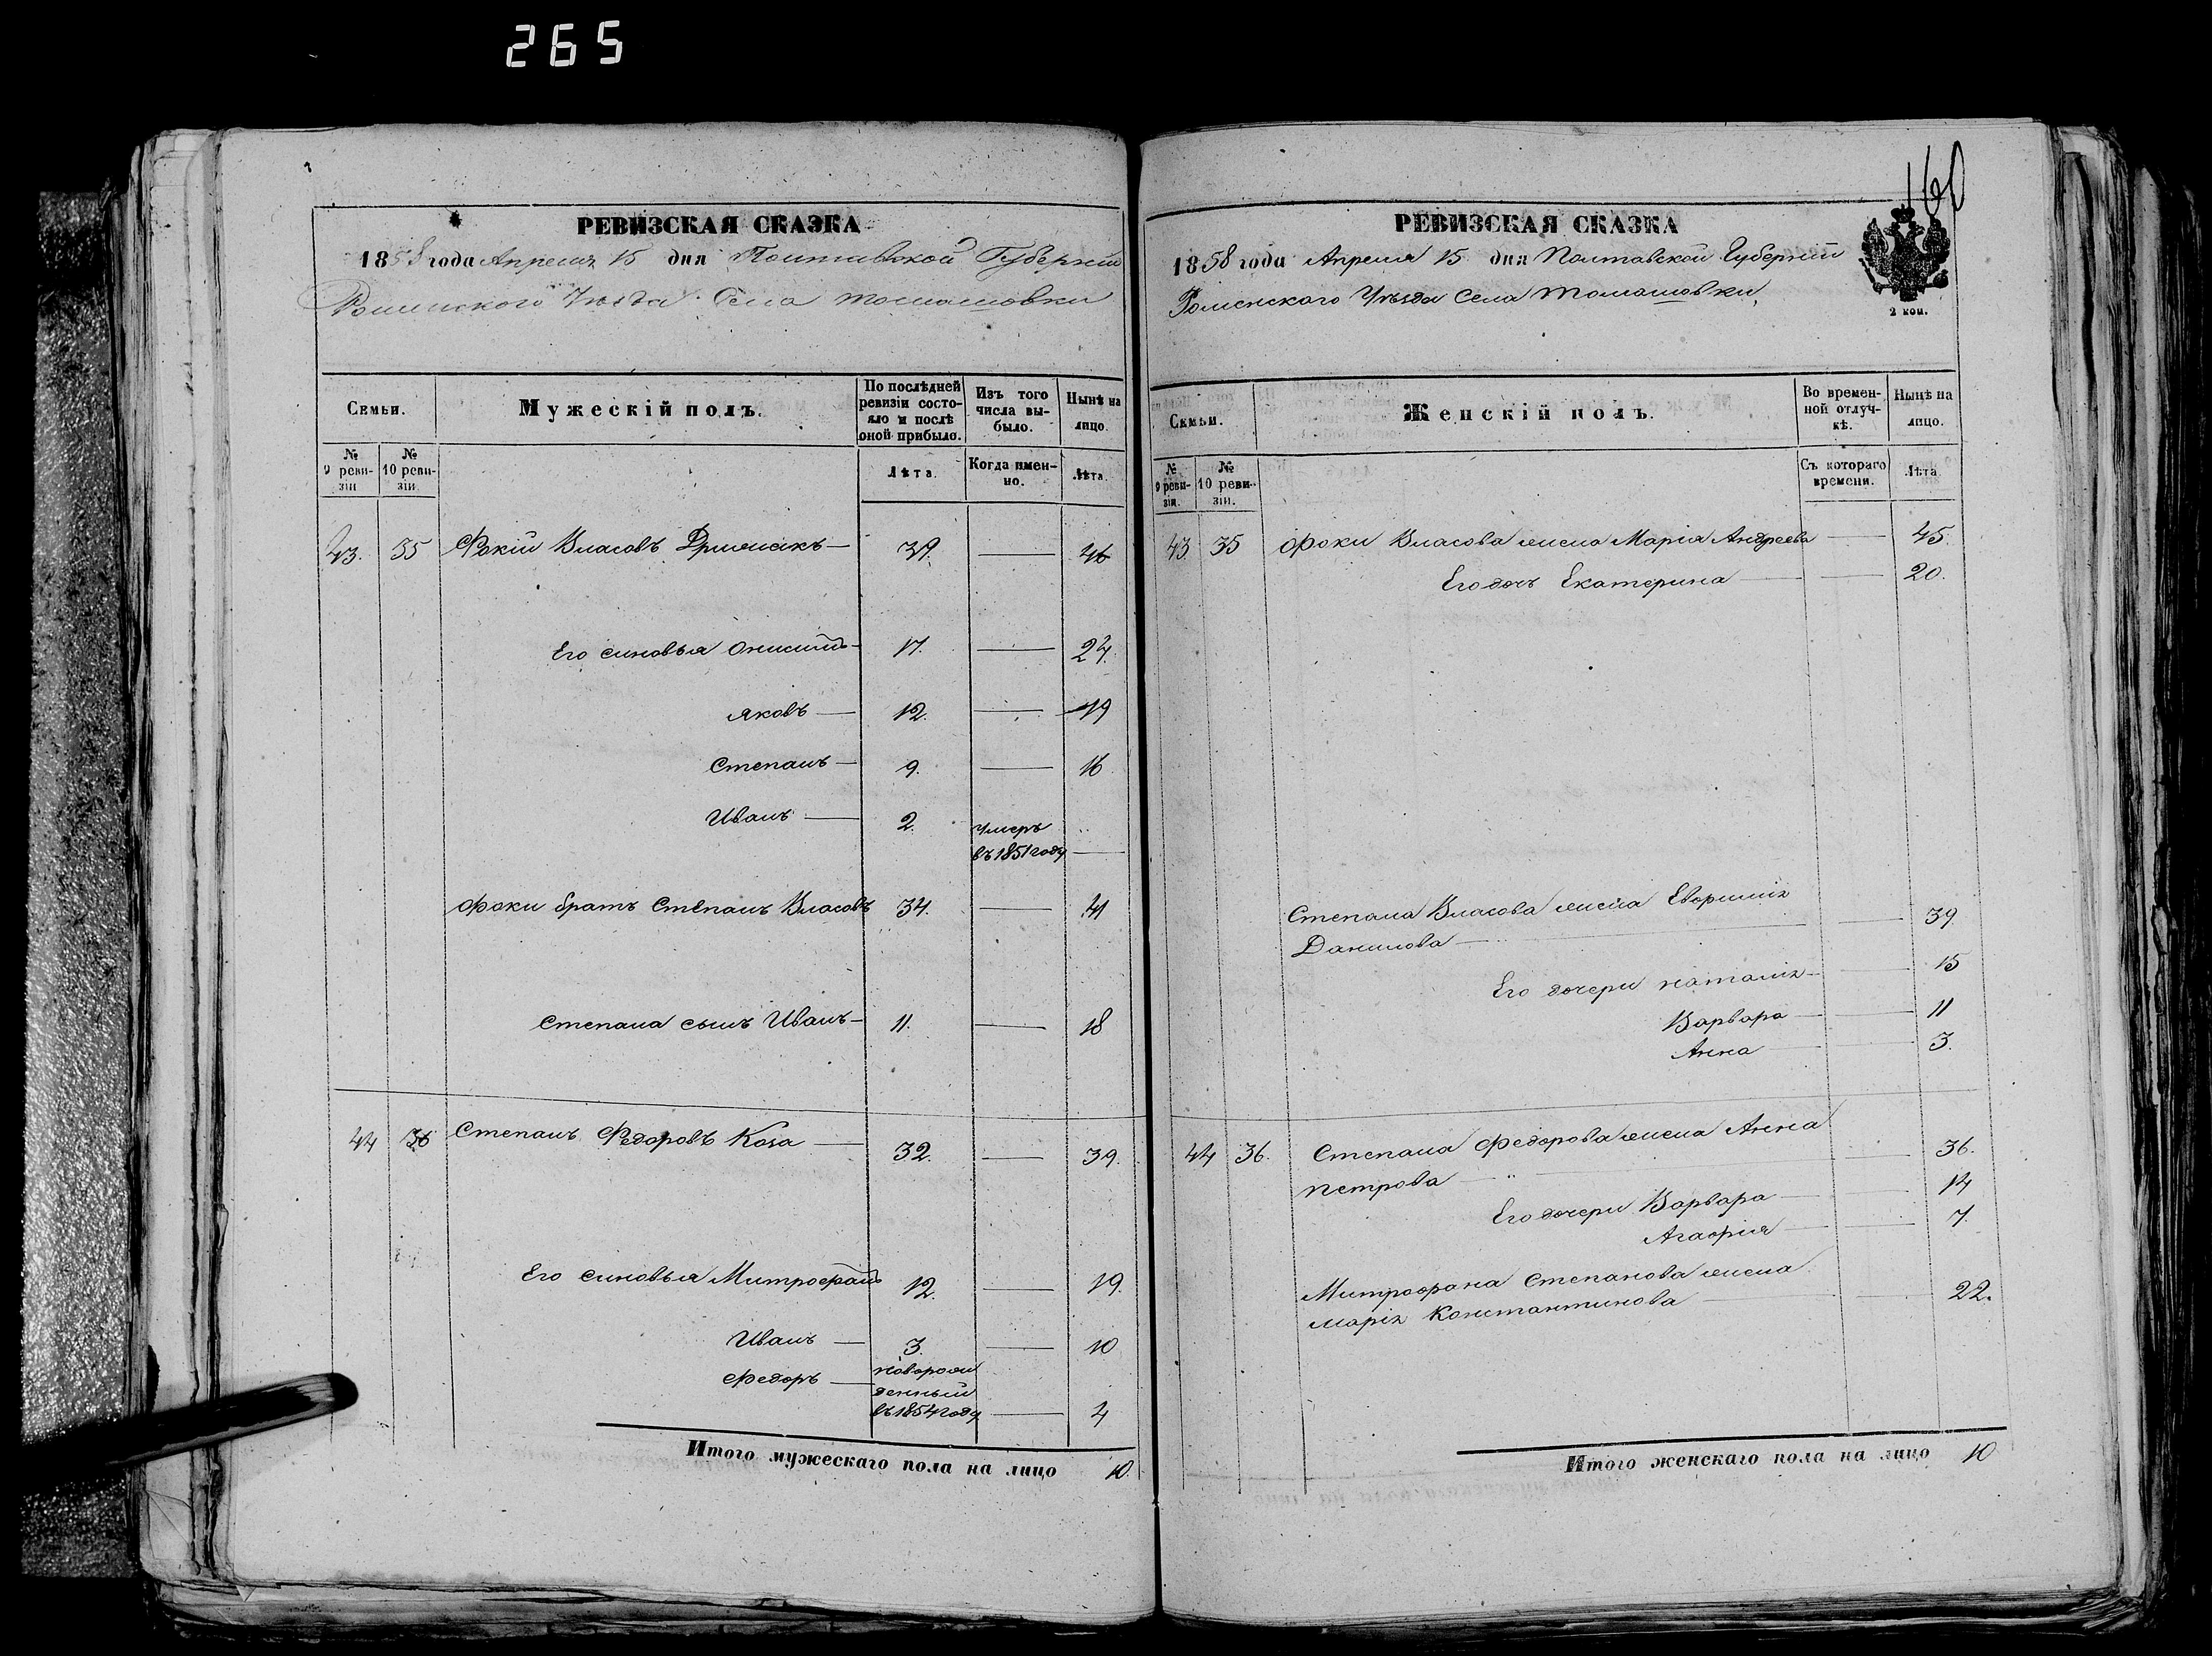 265
160
РЕВИЗСКАЯ СКАЗКА
1858 года Апреля 15 дня Полтавской Губерніи
Роменского Уезда Села Томашовки
Семьи.
Мужескій полъ.
По послѣдней ревизіи состояло и послѣ оной прибыло.
Изъ того числа выбыло.
Нынѣ на лицо.
№ 9 ревизіи
№ 10 ревизіи
Лѣта.
Когда именно.
Лѣта.
43. 35 Фокій Власовъ 39. 46
Его синовья Онисимъ 17. 24.
Яковъ 12. 19
Степанъ 9. 16
Иванъ 2. умеръ
въ 1851 году
Фоки братъ Степанъ Власовъ 34. 41
Степана сынъ Иванъ 11. 18
44 36 Степанъ Федоровъ Коза 32. 39.
Его синовья Митрофанъ 12. 19.
Иванъ 3. 10
Федоръ новорож
денный
въ 1854 году 4
Итого мужескаго пола на лицо 10.
РЕВИЗСКАЯ СКАЗКА
1858 года Апреля 15 дня Полтавской Губерніи
Роменского Уѣзда Села Томашовки,
2 коп.
Семьи.
Женскій полъ.
Во временной отлучкѣ.
Нынѣ на лицо.
№ 9 ревизіи.
№ 10 ревизіи.
Съ котораго времени.
Лѣта.
43. 35 Фоки Власова жена Марія Андреева 45.
Его дочь Екатерина 20.
Степана Власова жена Евфимія
Данилова 39.
Его дочери Наталія 15
Варвара 11
Анна 3.
44 36. Степана Федорова жена Анна
Петрова 36.
Его дочери Варвара 14
Агафія 7.
Митрофана Степанова жена
Марія Константинова 22.
Итого женскаго пола на лицо 10